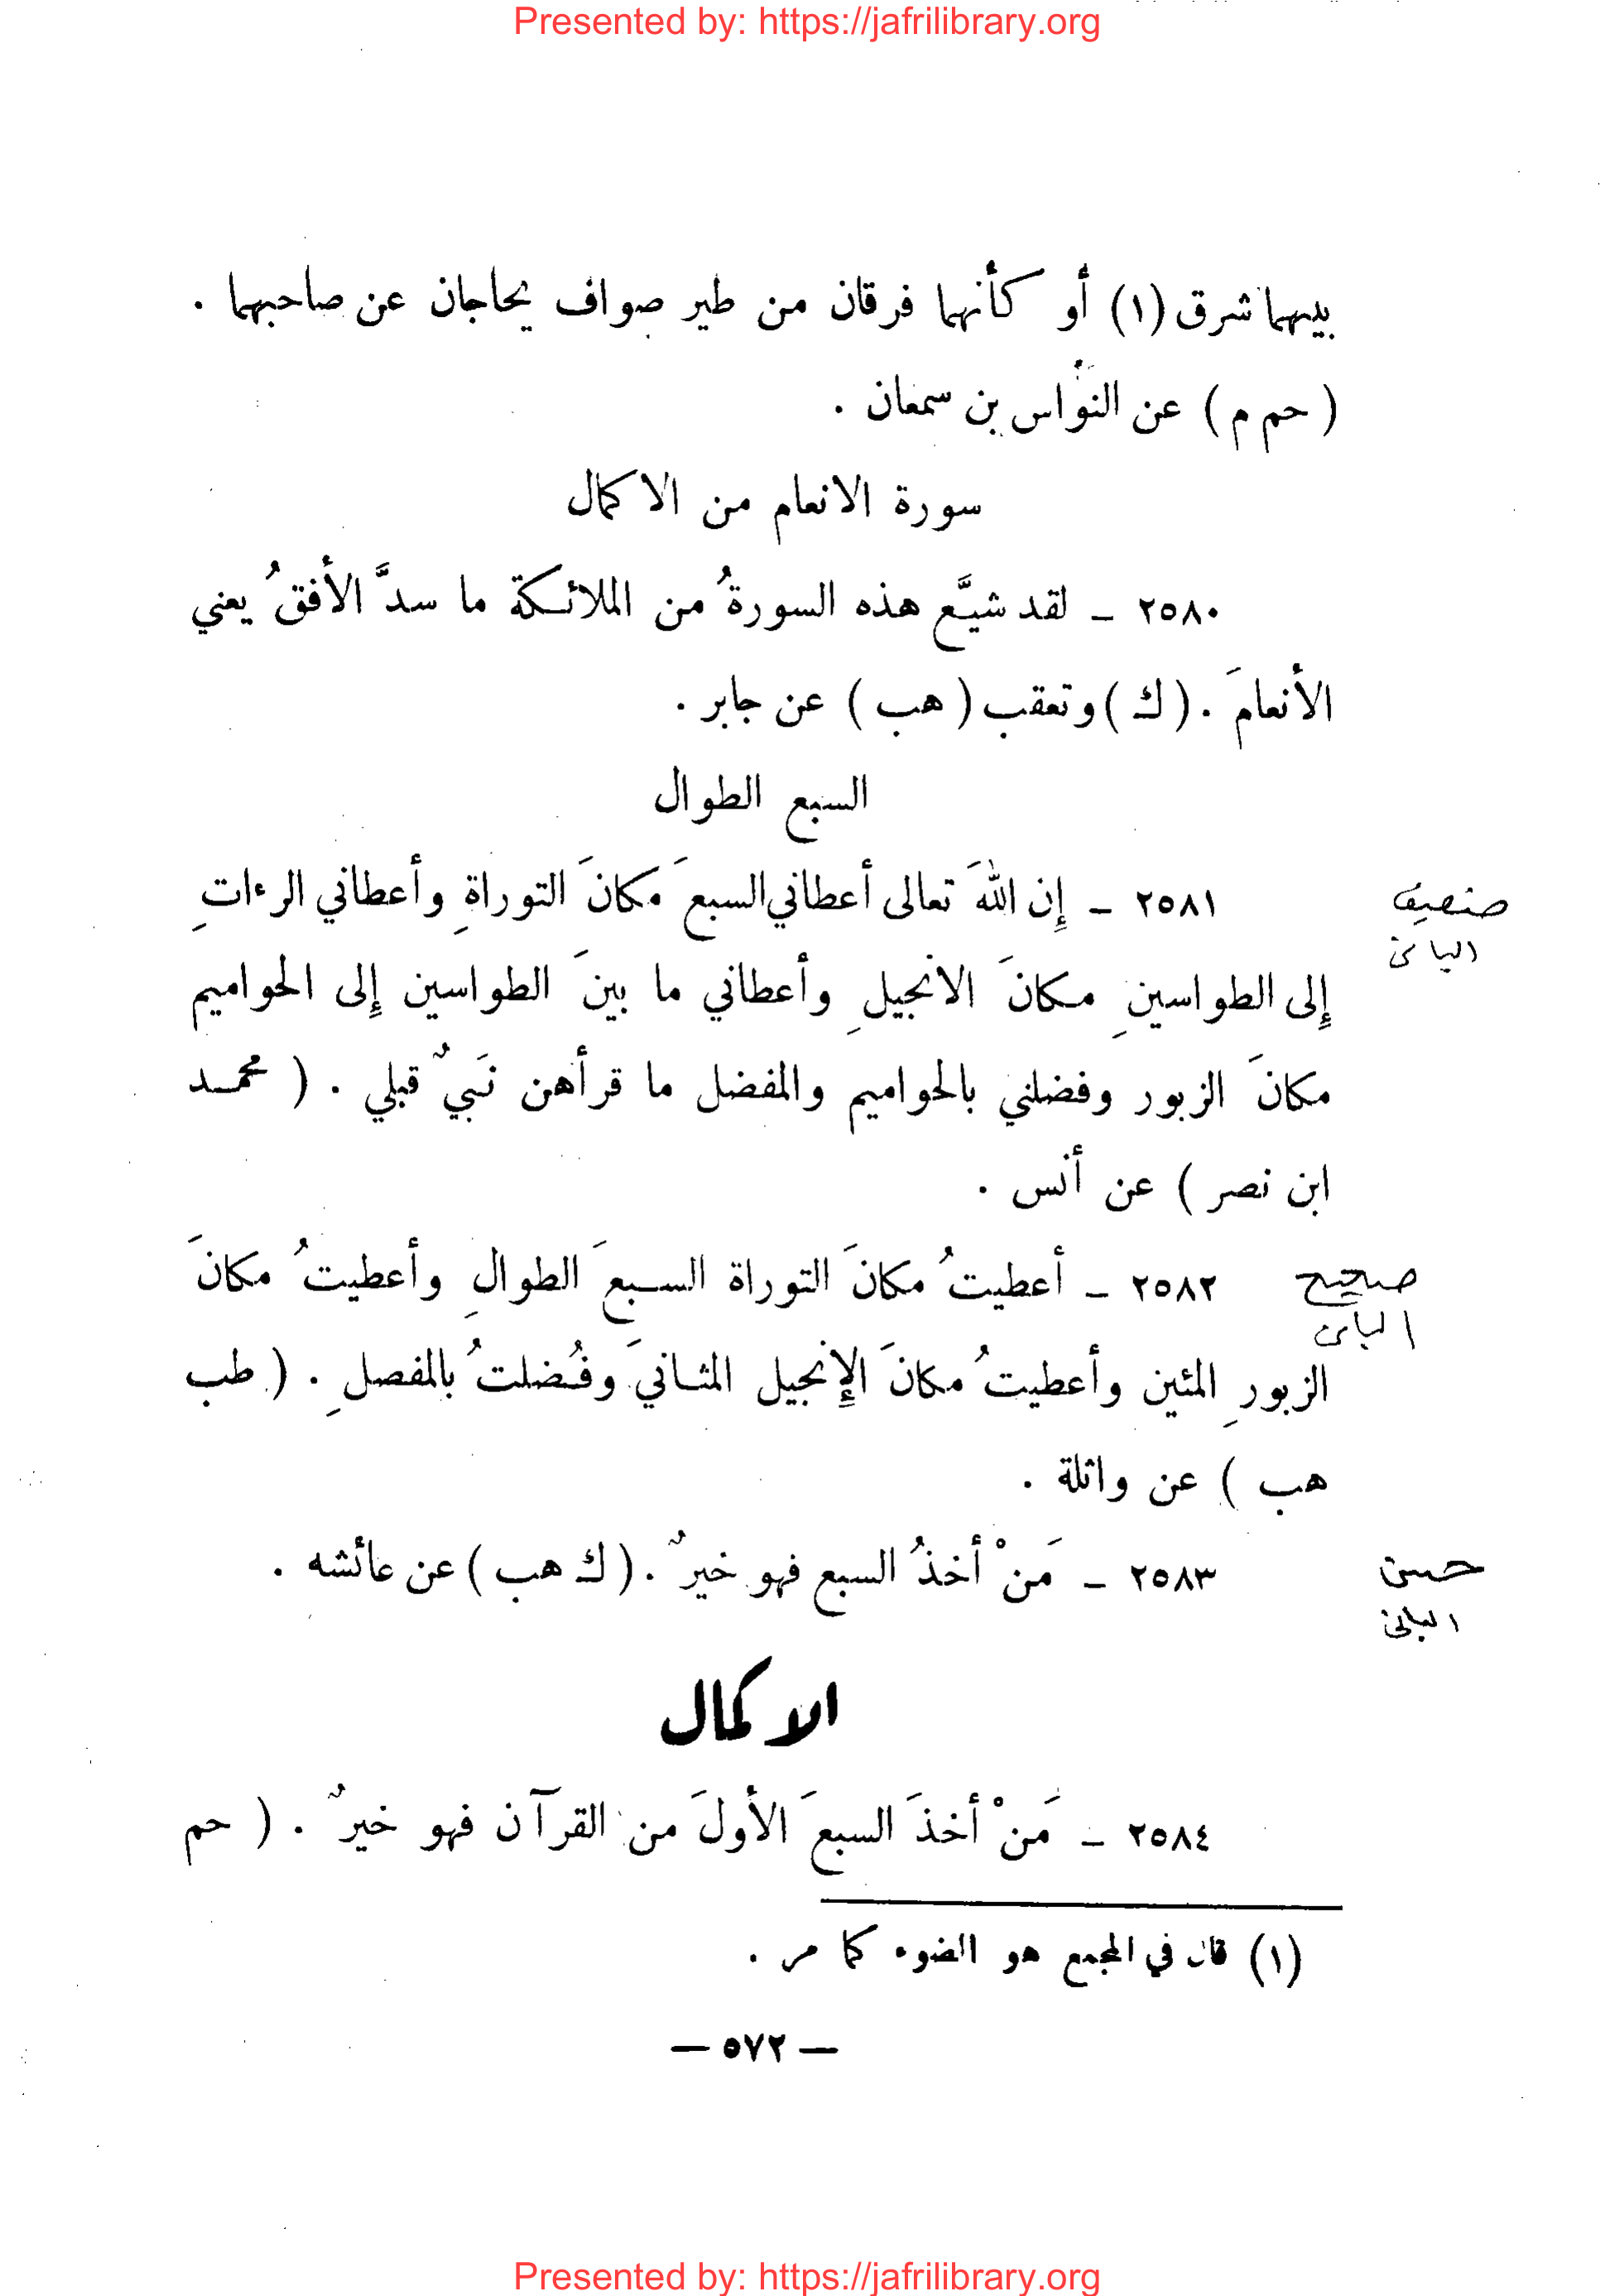 Presented by: https://jafrilibrary.org
بينهما شرق (١) أو كأنهما فرقان من طير صواف يحاجان عن صاحبهما .
( حم م ) عن النوّاس بن سمعان .
سورة الانعام من الاكمال
٢٥٨٠ ـ لقد شيَّع هذه السورةُ من الملائكة ما سدَّ الأفقُ يعني
الأنعامَ . ( ك ) وتعقب ( هب ) عن جابر .
السبع الطوال
٢٥٨١ ـ إِن اللهَ تعالى أعطاني السبعَ مكانَ التوراةِ وأعطاني الرءاتِ
ضعيف
البانى
إِلى الطواسينِ مكانَ الانجيلِ وأعطاني ما بينَ الطواسين إِلى الحواميم
مكانَ الزبور وفضلني بالحواميم والمفضل ما قرأهن نَبيٌ قبلي . ( محمد
ابن نصر ) عن أنس .
٢٥٨٢ ـ أعطيتُ مكانَ التوراة السبعَ الطوالِ وأعطيتُ مكانَ
صحيح
البانى
الزبورِ المئين وأعطيتُ مكانَ الإِنجيل المثانيَ وفُضلتُ بالمفصلِ . ( طب
هب ) عن واثلة .
٢٥٨٣ ـ مَنْ أخذُ السبع فهو خيرٌ . ( ك هب ) عن عائشه .
حسن
البانى
الاكمال
٢٥٨٤ ـ مَنْ أخذَ السبعَ الأولَ من القرآن فهو خيرٌ . ( حم
(١) قال في المجمع هو الضوء كما مر .
— ٥٧٢ —
Presented by: https://jafrilibrary.org